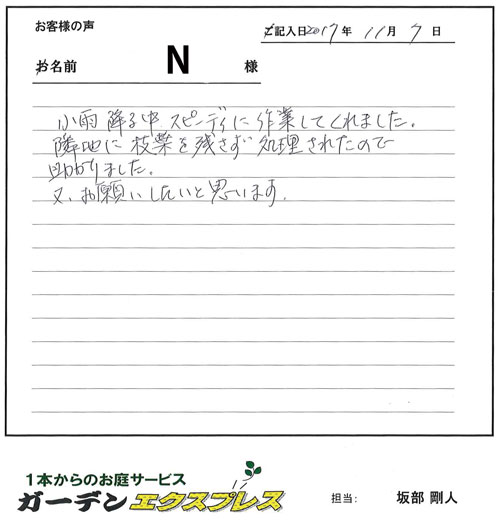 お客様の声
ご記入日2017年 11月 7日
お名前 N 様
小雨降る中スピーディに作業してくれました。
隣地に枝葉を残さず処理されたので
助かりました。
又、お願いしたいと思います。
1本からのお庭サービス
ガーデンエクスプレス
担当: 坂部 剛人